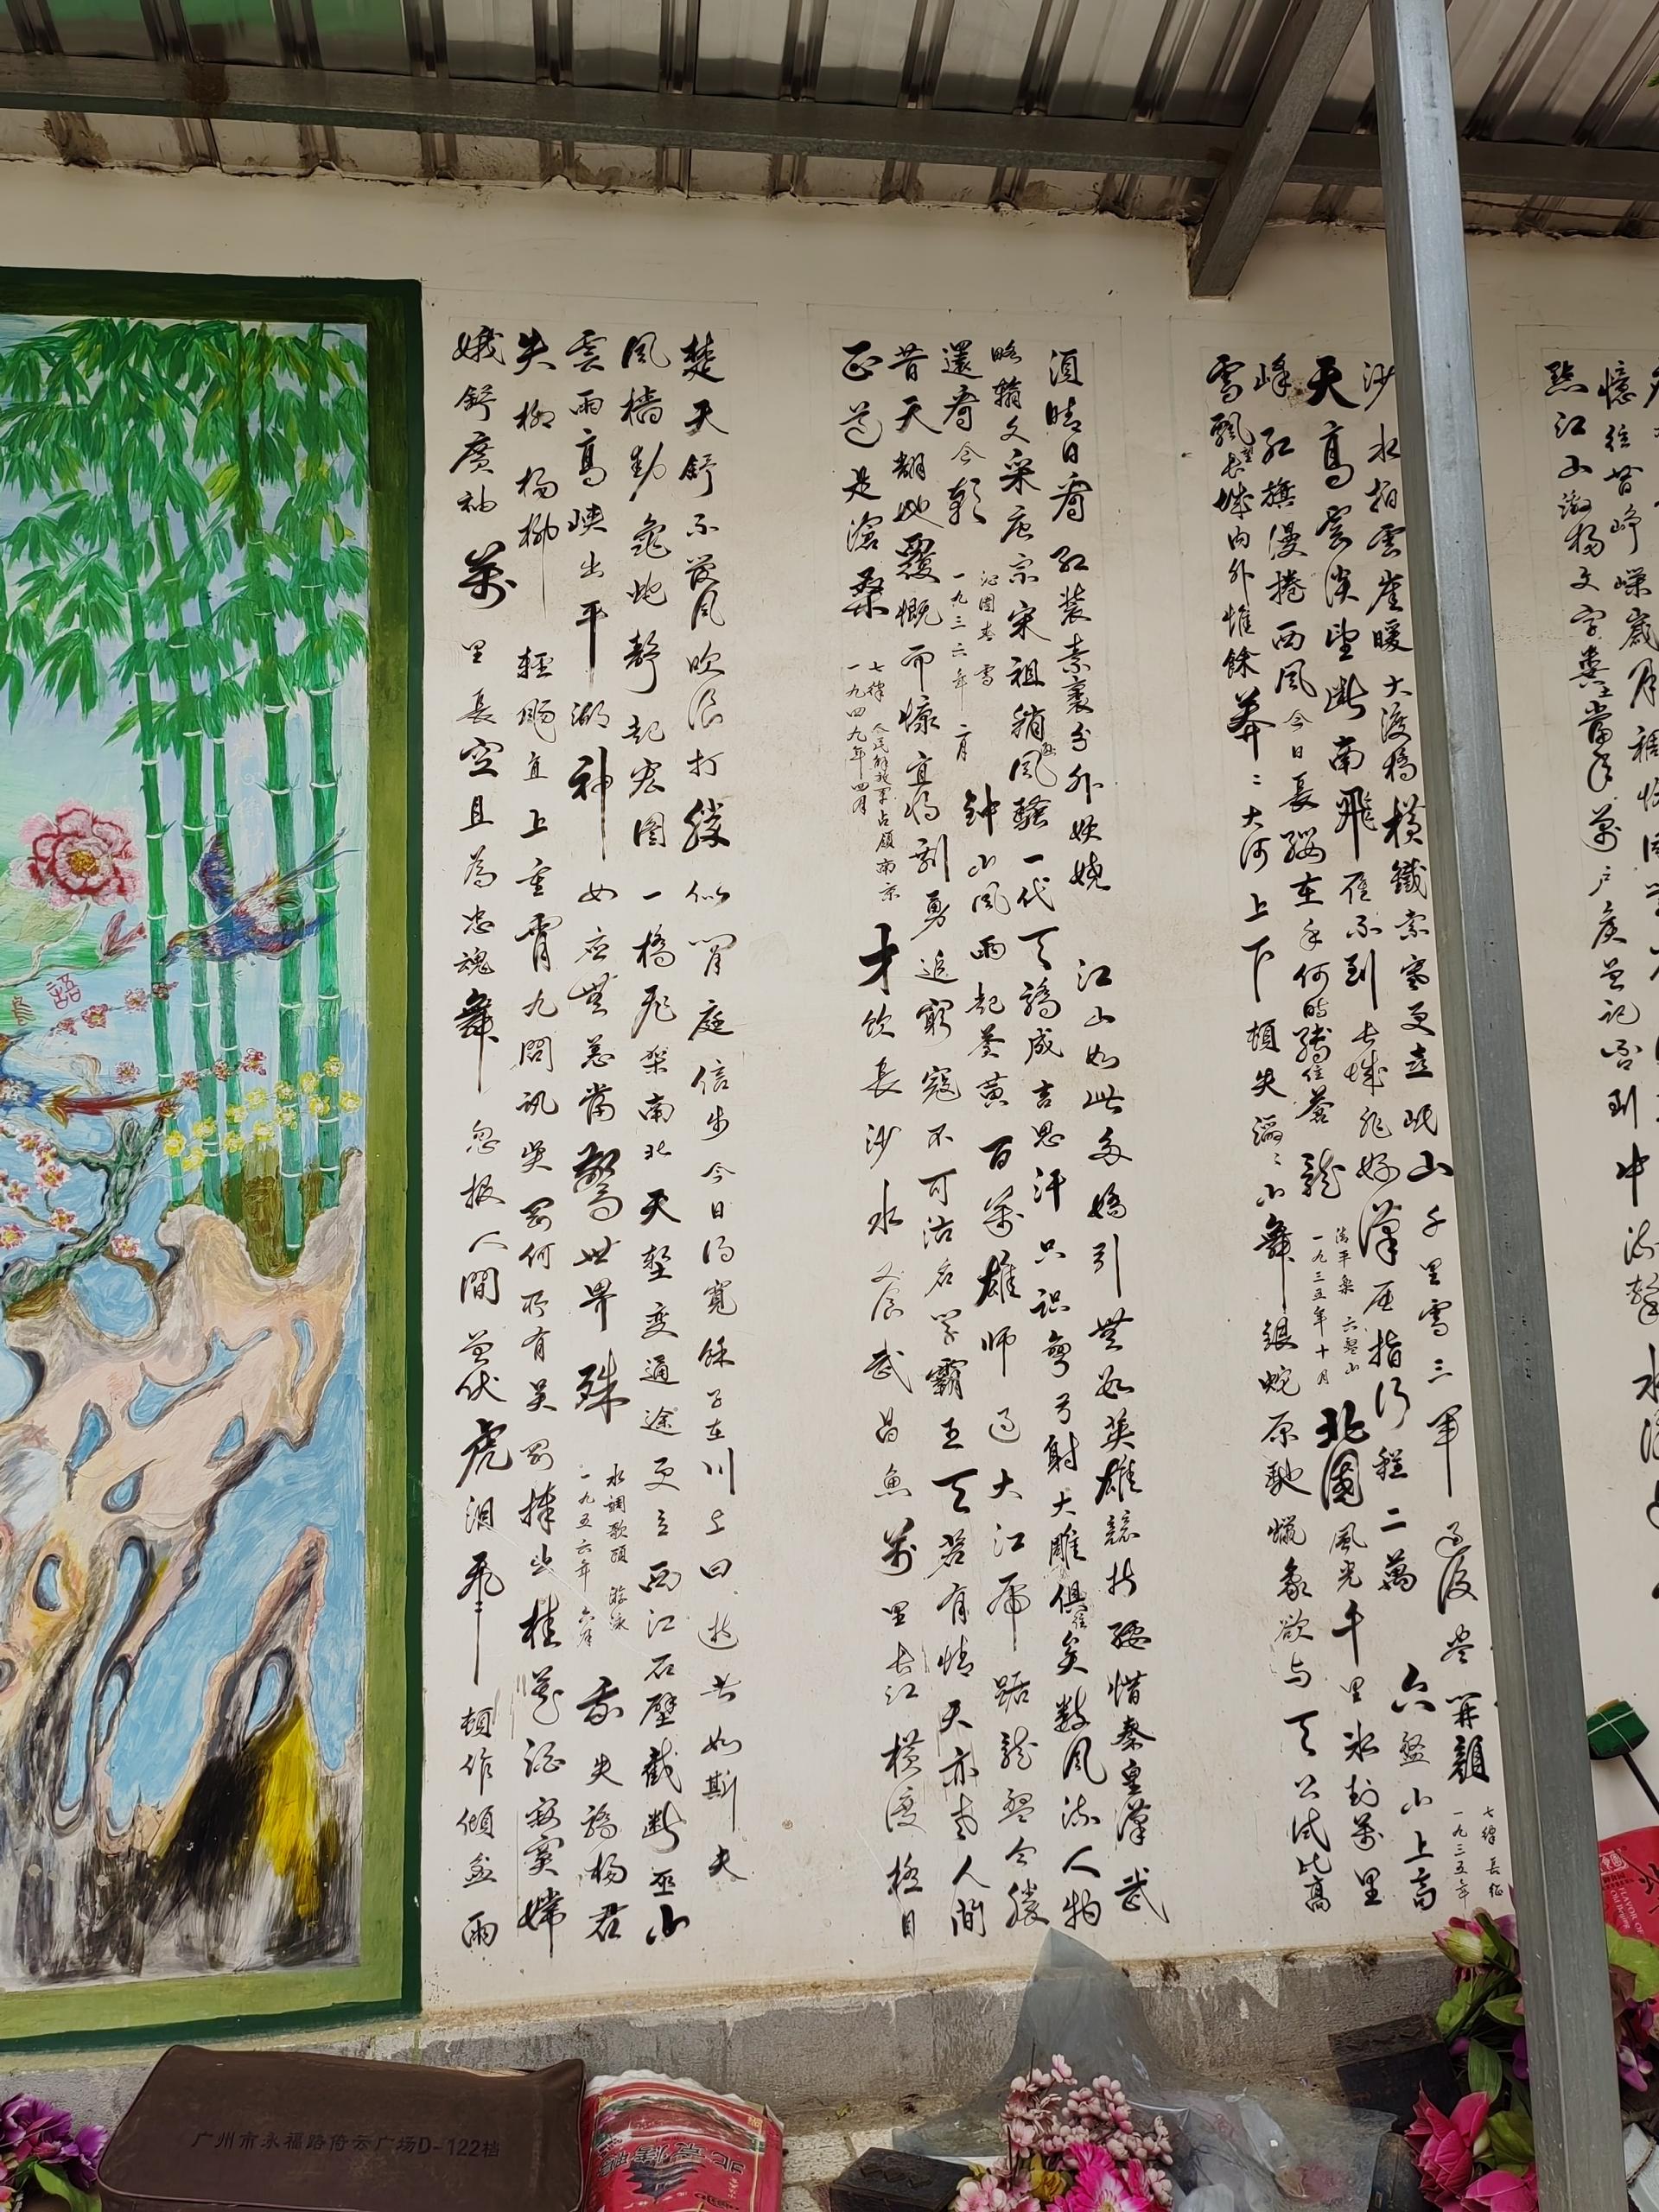 憶往昔崢嶸歲月稠恰同學
點江山激揚文字糞土當年萬戶侯曾記否到中流擊水
沙水拍雲崖暖大渡橋橫鐵索寒更喜岷山千里雪三軍過後盡開顏
七律 長征
一九三五年
天高雲淡望斷南飛雁不到長城非好漢屈指行程二萬六盤山上高
峰紅旗漫捲西風今日長纓在手何時縛住蒼龍
清平樂 六盤山
一九三五年十月
北國風光千里冰封萬里
雪飄望長城內外惟餘莽〻大河上下頓失滔〻山舞銀蛇原馳蠟象欲与天公試比高
須晴日看紅裝素裹分外妖嬈江山如此多嬌引無數英雄競折腰惜秦皇漢武
略輸文采唐宗宋祖稍遜風騷一代天驕成吉思汗只識彎弓射大雕俱往矣數風流人物
還看今朝
沁園春 雪
一九三六年二月
鐘山風雨起蒼黃百萬雄师过大江虎踞龍盤今勝
昔天翻地覆慨而慷宜將剩勇追窮寇不可沽名学霸王天若有情天亦老人間
正道是滄桑
七律 人民解放軍占領南京
一九四九年四月
才飲長沙水又食武昌魚萬里長江橫渡極目
楚天舒不管風吹浪打勝似閒庭信步今日得寬餘子在川上曰逝者如斯夫
風檣動龜蛇靜起宏图一橋飛架南北天塹變通途更立西江石壁截斷巫山
雲雨高峽出平湖神女应無恙當驚世界殊
水調歌頭 游泳
一九五六年六月
我失驕楊君
失柳楊柳輕颺直上重霄九問訊吳剛何所有吴剛捧出桂花酒寂寞嫦
娥舒廣袖萬里長空且為忠魂舞忽报人間曾伏虎淚飛頓作傾盆雨
語
广州市永福路倚云广场D-122档
北京烤鸭
FLAVOR OF
Old Beijing